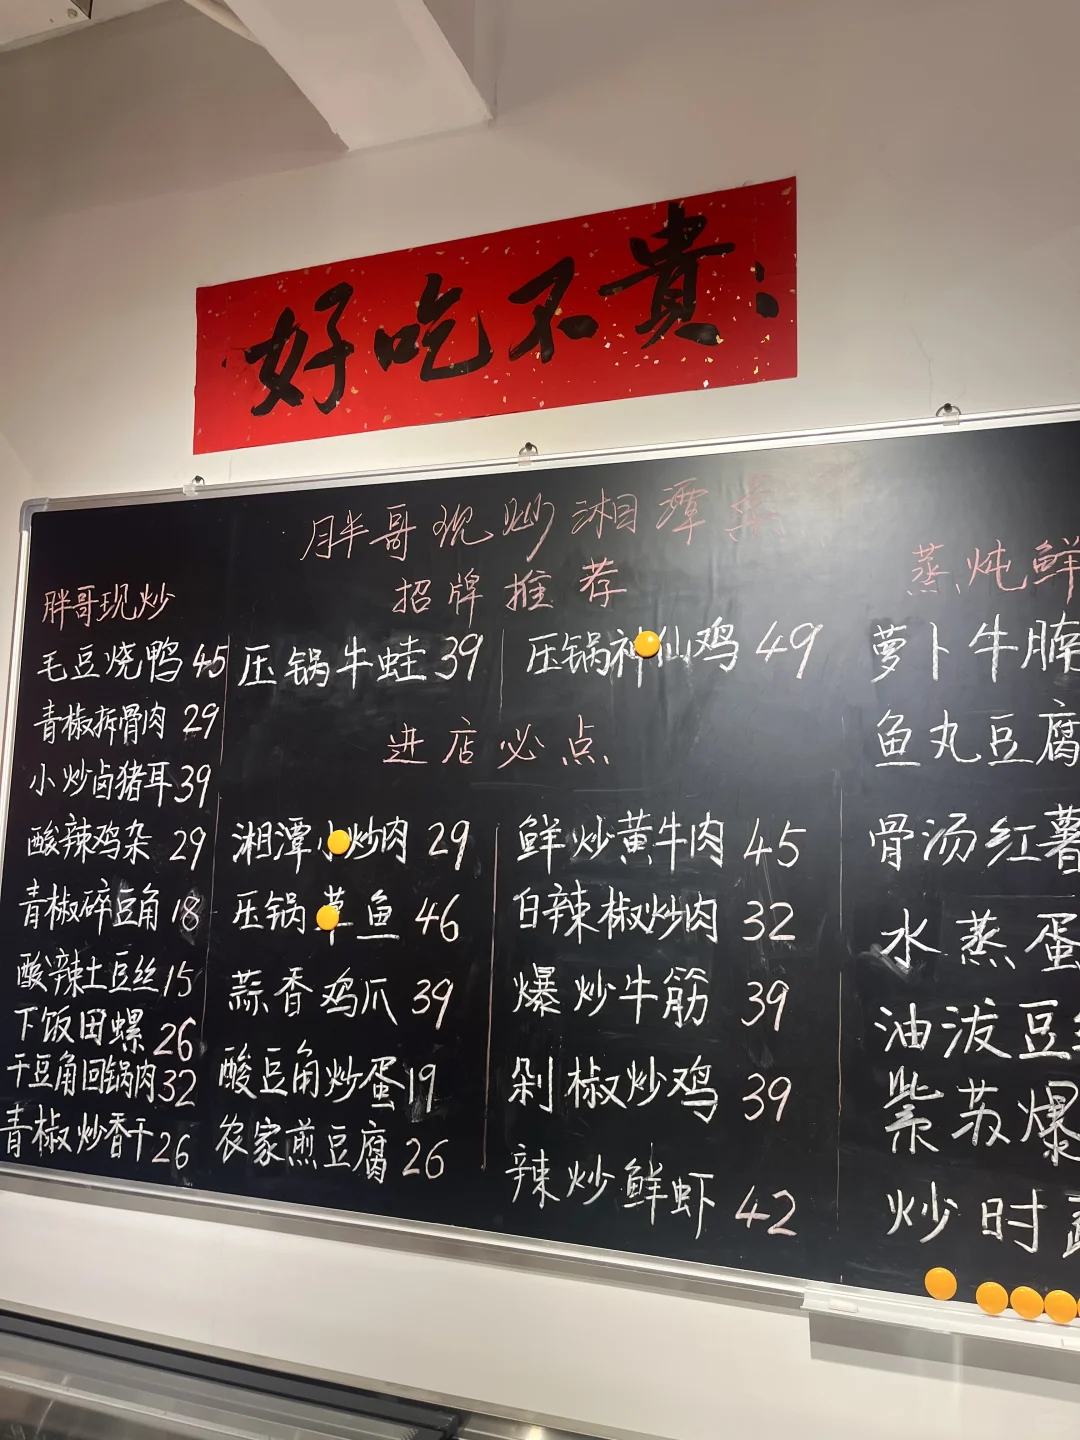 好吃不貴
胖哥现炒湘潭菜
胖哥现炒
毛豆烧鸭 45
青椒拆骨肉 29
小炒卤猪耳 39
酸辣鸡杂 29
青椒碎豆角 18
酸辣土豆丝 15
下饭田螺 26
干豆角回锅肉 32
青椒炒香干 26
招牌推荐
压锅牛蛙 39
压锅神仙鸡 49
进店必点
湘潭小炒肉 29
压锅草鱼 46
蒜香鸡爪 39
酸豆角炒蛋 19
农家煎豆腐 26
鲜炒黄牛肉 45
白辣椒炒肉 32
爆炒牛筋 39
剁椒炒鸡 39
辣炒鲜虾 42
蒸炖鲜
萝卜牛腩
鱼丸豆腐
骨汤红薯
水蒸蛋
油泼豆
紫苏爆
炒时